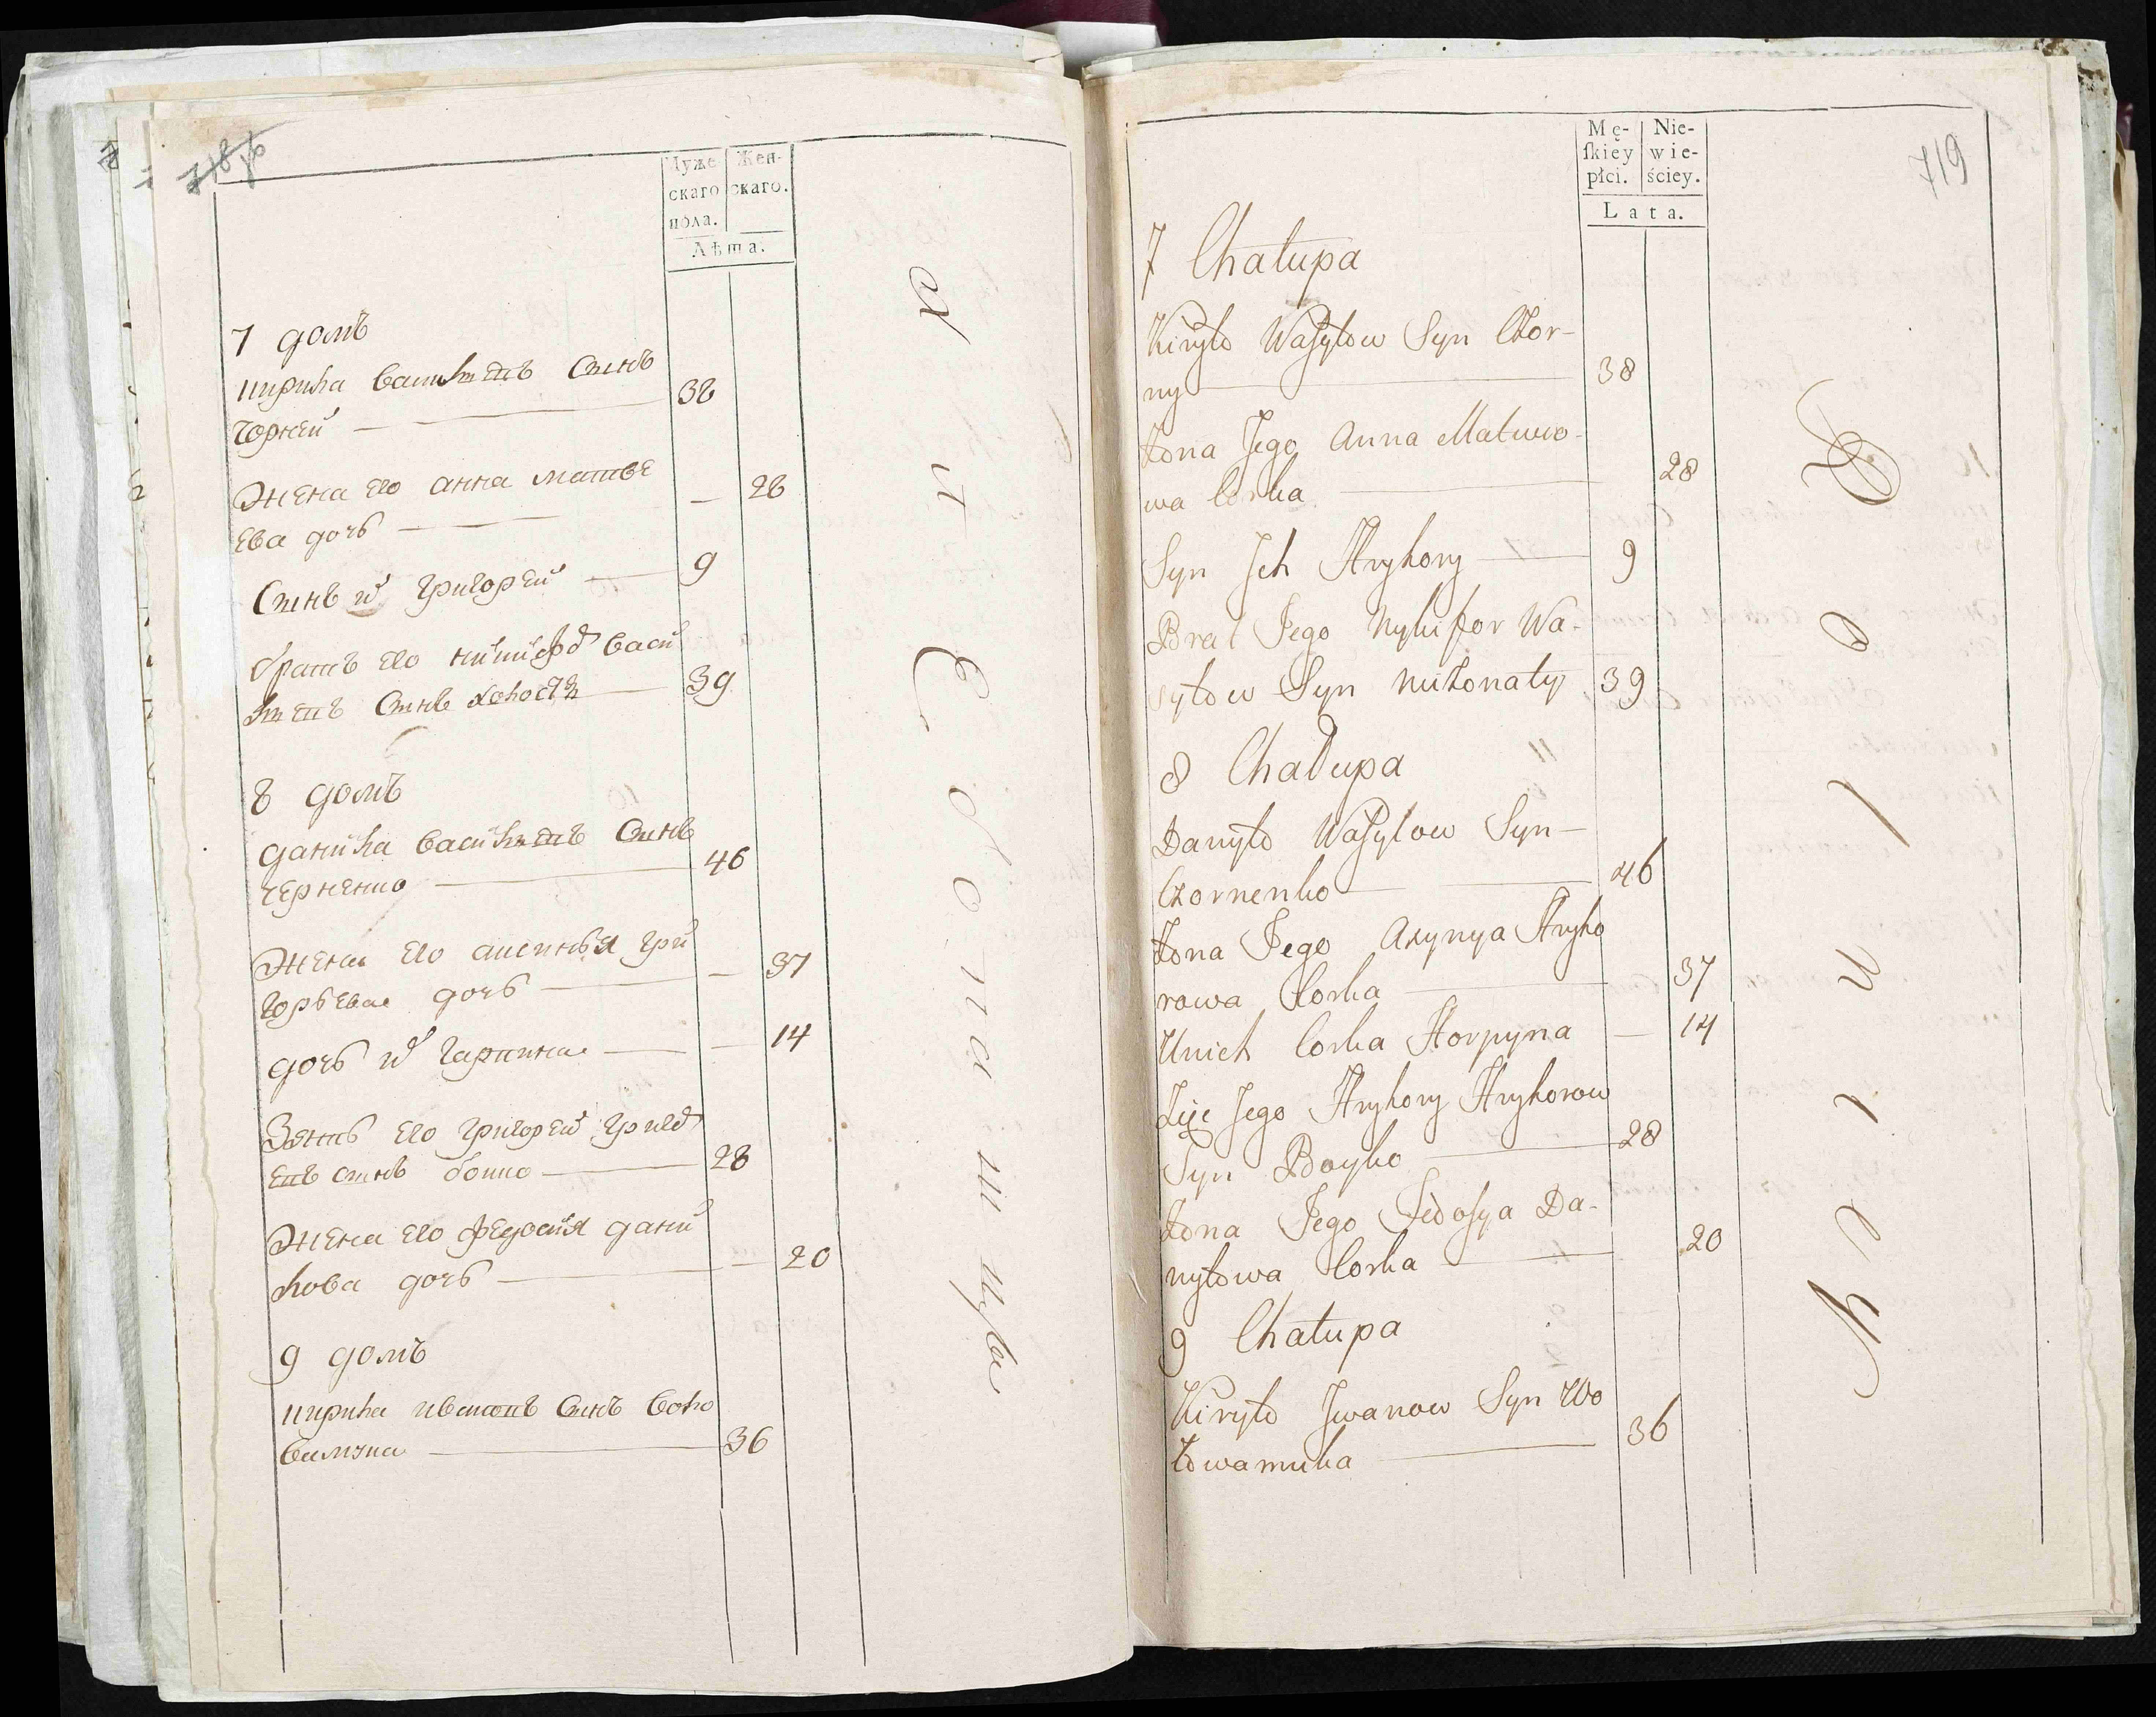 718 об
Муже-
скаго
пола.
Жен-
скаго.
Лѣта.
7 домъ
кирила василевъ Синъ
чорней 38
Жена его анна матве
ева дочь — 28
Синъ их григорей 9
братъ его никифор васи
левъ Синъ холостъ 39
8 домъ
данила василевъ Синъ
черненко 46
Жена его аксинья гри
горьева дочь — 37
дочь их гарпина — 14
Зять его григорей григор
евъ синъ бойко 28
Жена его федосия дани
лова дочь — 20
9 домъ
кирила ивановъ Синъ воло
вамука 36
719
Mę-
ſkiey
płci.
Nie-
wie-
ściey.
Lata.
7 Chałupa
Kiryło Wasyłow Syn Czor-
ny 38
Żona Jego Anna Matwio-
wa Corka 28
Syn Jch Hryhory 9
Brat Jego Nykifor Wa-
syłow Syn niżonaty 39
8 Chałupa
Danyło Wasyłow Syn
Czornenko 46
Żona Jego Axynya Hryho
rowa Corka 37
Unich Corka Horpyna — 14
Zięc Jego Hryhory Hryhorow
Syn Boyko 28
Żona Jego Fedosya Da-
nyłowa Corka 20
9 Chałupa
Kiryło Jwanow Syn Wo
łowamuka 36